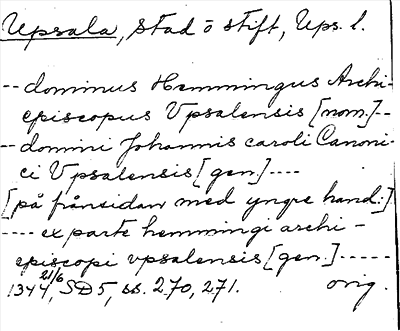 Upsala, stad o stift, Ups. l.
-- dominus Hemmingus Archi-
episcopus Vpsalensis [nom.] --
-- domini Johannis caroli Canoni-
ci Vpsalensis [gen.] ----
[på frånsidan med yngre hand:]
---- ex parte hemmingi archi-
episcopi vpsalensis [gen.] -----
1344 21/6, SD 5, ss. 270, 271. orig.